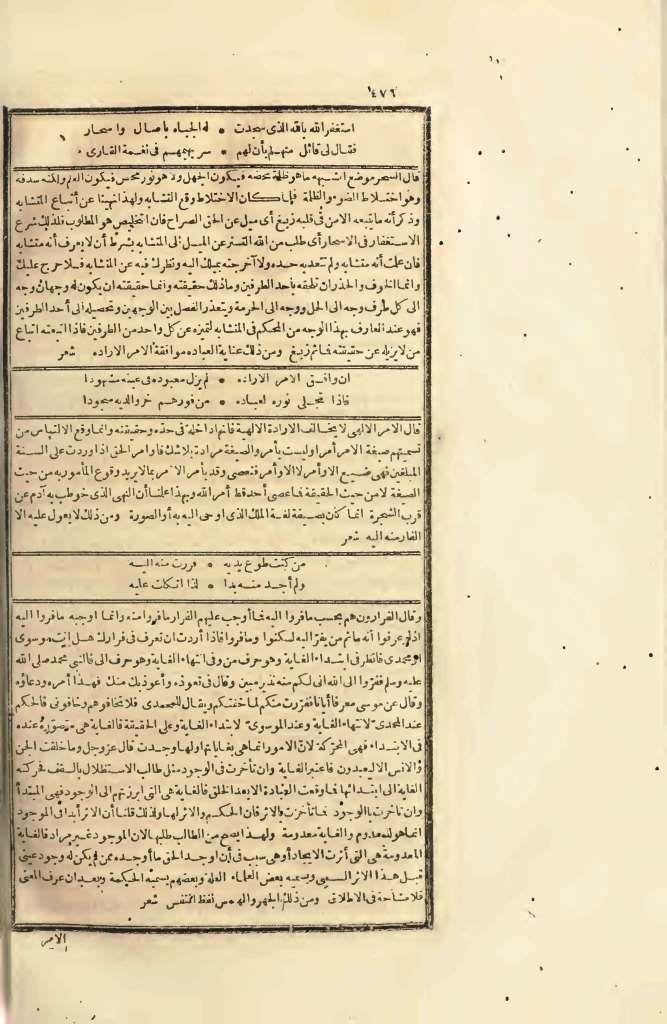 ٤٧٦
استغفر الله بالله الذى سجدت • له الجباه بآصال وأسحار
فقال لى قائل منهم بأن لهم • سريهم فى نغمة القارى
قال السحر موضع الشبهه ما هو ظلمة محضه فيكون الجهل ولا هو نور محض فيكون العلم ولكنه سدفة
وهو اختلاط الضوء والظلمة فلما كان الاختلاط وقع التشابه ولهذا نهينا عن أتباع المتشابه
وذكر أنه ما يتبعه الا من فى قلبه زيغ أى ميل عن الحق الصراح فان التخليص هو المطلوب فلذلك شرع
الاستغفار فى الاسحار أى طلب من الله التستر عن الميل الى المتشابه بشرط أن لا يعرف أنه متشابه
فان علمت أنه متشابه ولم تتعد به حده ولا أخرجته بميلك اليه ونظرك فيه عن المتشابه فلا حرج عليك
وانما الخوف والحذر ان تلحقه بأحد الطرفين وما ذلك حقيقته وانما حقيقته ان يكون له وجهان وجه
الى كل طرف وجه الى الحل ووجه الى الحرمة ويتعذر الفصل بين الوجهين وتحصيله الى أحد الطرفين
فهو عند العارف بهذا الوجه من المحكم فى المتشابه لتميزه عن كل واحد من الطرفين فاذا اتبعته اتباع
من لا يزيله عن حقيقته فما ثم زيغ ومن ذلك عناية العباده موافقة الامر الاراده شعر
ان وافق الامر الاراده • لم يزل معبوده فى عينه مشهودا
فاذا تجلى نوره لعباده • من فورهم خر والديه سجودا
قال الامر الالهى لا يخالف الارادة الالهية فانها داخلة فى حده وحقيقته وانما وقع الالتباس من
تسميتهم صيغة الامر أمرا وليست بأمر والصيغة مرادة بلا شك فأوامر الحق اذا وردت على السنة
المبلغين فهى صيغ الاوامر لا الاوامر فتعصى وقد يأمر الآمر بما لا يريد وقوع المأمور به من حيث
الصيغة لا من حيث الحقيقة فما عصى أحد قط أمر الله وبهذا علنا أن النهى الذى خوطب به آدم عن
قرب الشجرة انما كان بصيغة لغة الملك الذى اوحى اليه به أو الصورة ومن ذلك لا يعول عليه الا
الفار منه اليه شعر
من كنت طوع يديه • فررت منه اليه
ولم أجد منه بدا • لذا اتكلت عليه
وقال الفرارون هم بحسب ما فروا اليه فما أوجب عليهم الفرار ما فروا منه وانما اوجبه ما فروا اليه
اذ لو عرفوا أنه ما ثم من يفر اليه لسكنوا وما فروا فاذا أردت ان تعرف فى فرارك هل انت موسوى
او محمدى فانظر فى ابتداء الغاية وهو حرف من وفى انتهاء الغاية وهو حرف الى فالنبى محمد صلى الله
عليه وسلم ففروا الى الله انى لكم منه نذير مبين وقال فى تعوذه وأعوذ بك منك فهذا أمره ودعاؤه
وقال عن موسى معرفا ايانا ففررت منكم لما خفتكم ويقال للمحمدى فلا تخافوهم وخافونى فالحكم
عند المحمدى لانتهاء الغاية وعند الموسوى لابتداء الغاية وعلى الحقيقة فالغاية هى متصورة عنده
فى الابتداء فهى المحركة لان الامور انما هى بغاياتها ولها وجدت قال عز وجل وما خلقت الجن
والانس الا ليعبدون فاعتبر الغاية وان تأخرت فى الوجود مثل طالب الاستظلال بالسقف فحركته
الغاية الى ابتدائها فما وقعت العبادة الا بعد الخلق فالغاية هى التى ابرزتهم الى الوجود فهى المبتدأ
وان تأخرت بالوجود فما تأخرت بالاثر فان الحكم والاثر لها ولذلك قلنا أن الاثر أبدا فى الموجود
انما هو لمعدوم والغاية معدومة ولهذا يصح من الطالب طلبها لان الموجود غير مراد فالغاية
المعدومة هى التى أثرت الايجاد أو هى سبب فى أن اوجد الحق ما أوجده ممن لم يكن له وجود عينى
قبل هذا الاثر السببى ويسميه بعض العلماء العلة وبعضهم يسميه الحكمة وبعد ان عرف المعنى
فلا مشاحة فى الاطلاق ومن ذلك الجهر والهمس نفط المتنفس شعر
الامر